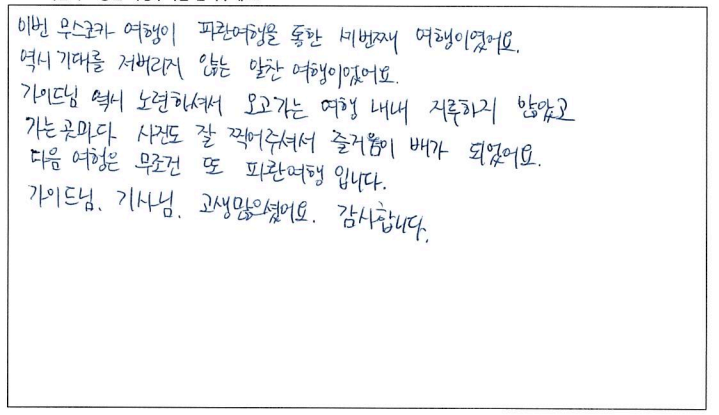 이번 무스코카 여행이 파란여행을 통한 세번째 여행이였어요.
역시 기대를 저버리지 않는 알찬 여행이었어요.
가이드님 역시 노련하셔서 오고가는 여행 내내 지루하지 않았고
가는 곳마다 사진도 잘 찍어주셔서 즐거움이 배가 되었어요.
다음 여행은 무조건 또 파란여행 입니다.
가이드님. 기사님. 고생많으셨어요. 감사합니다.